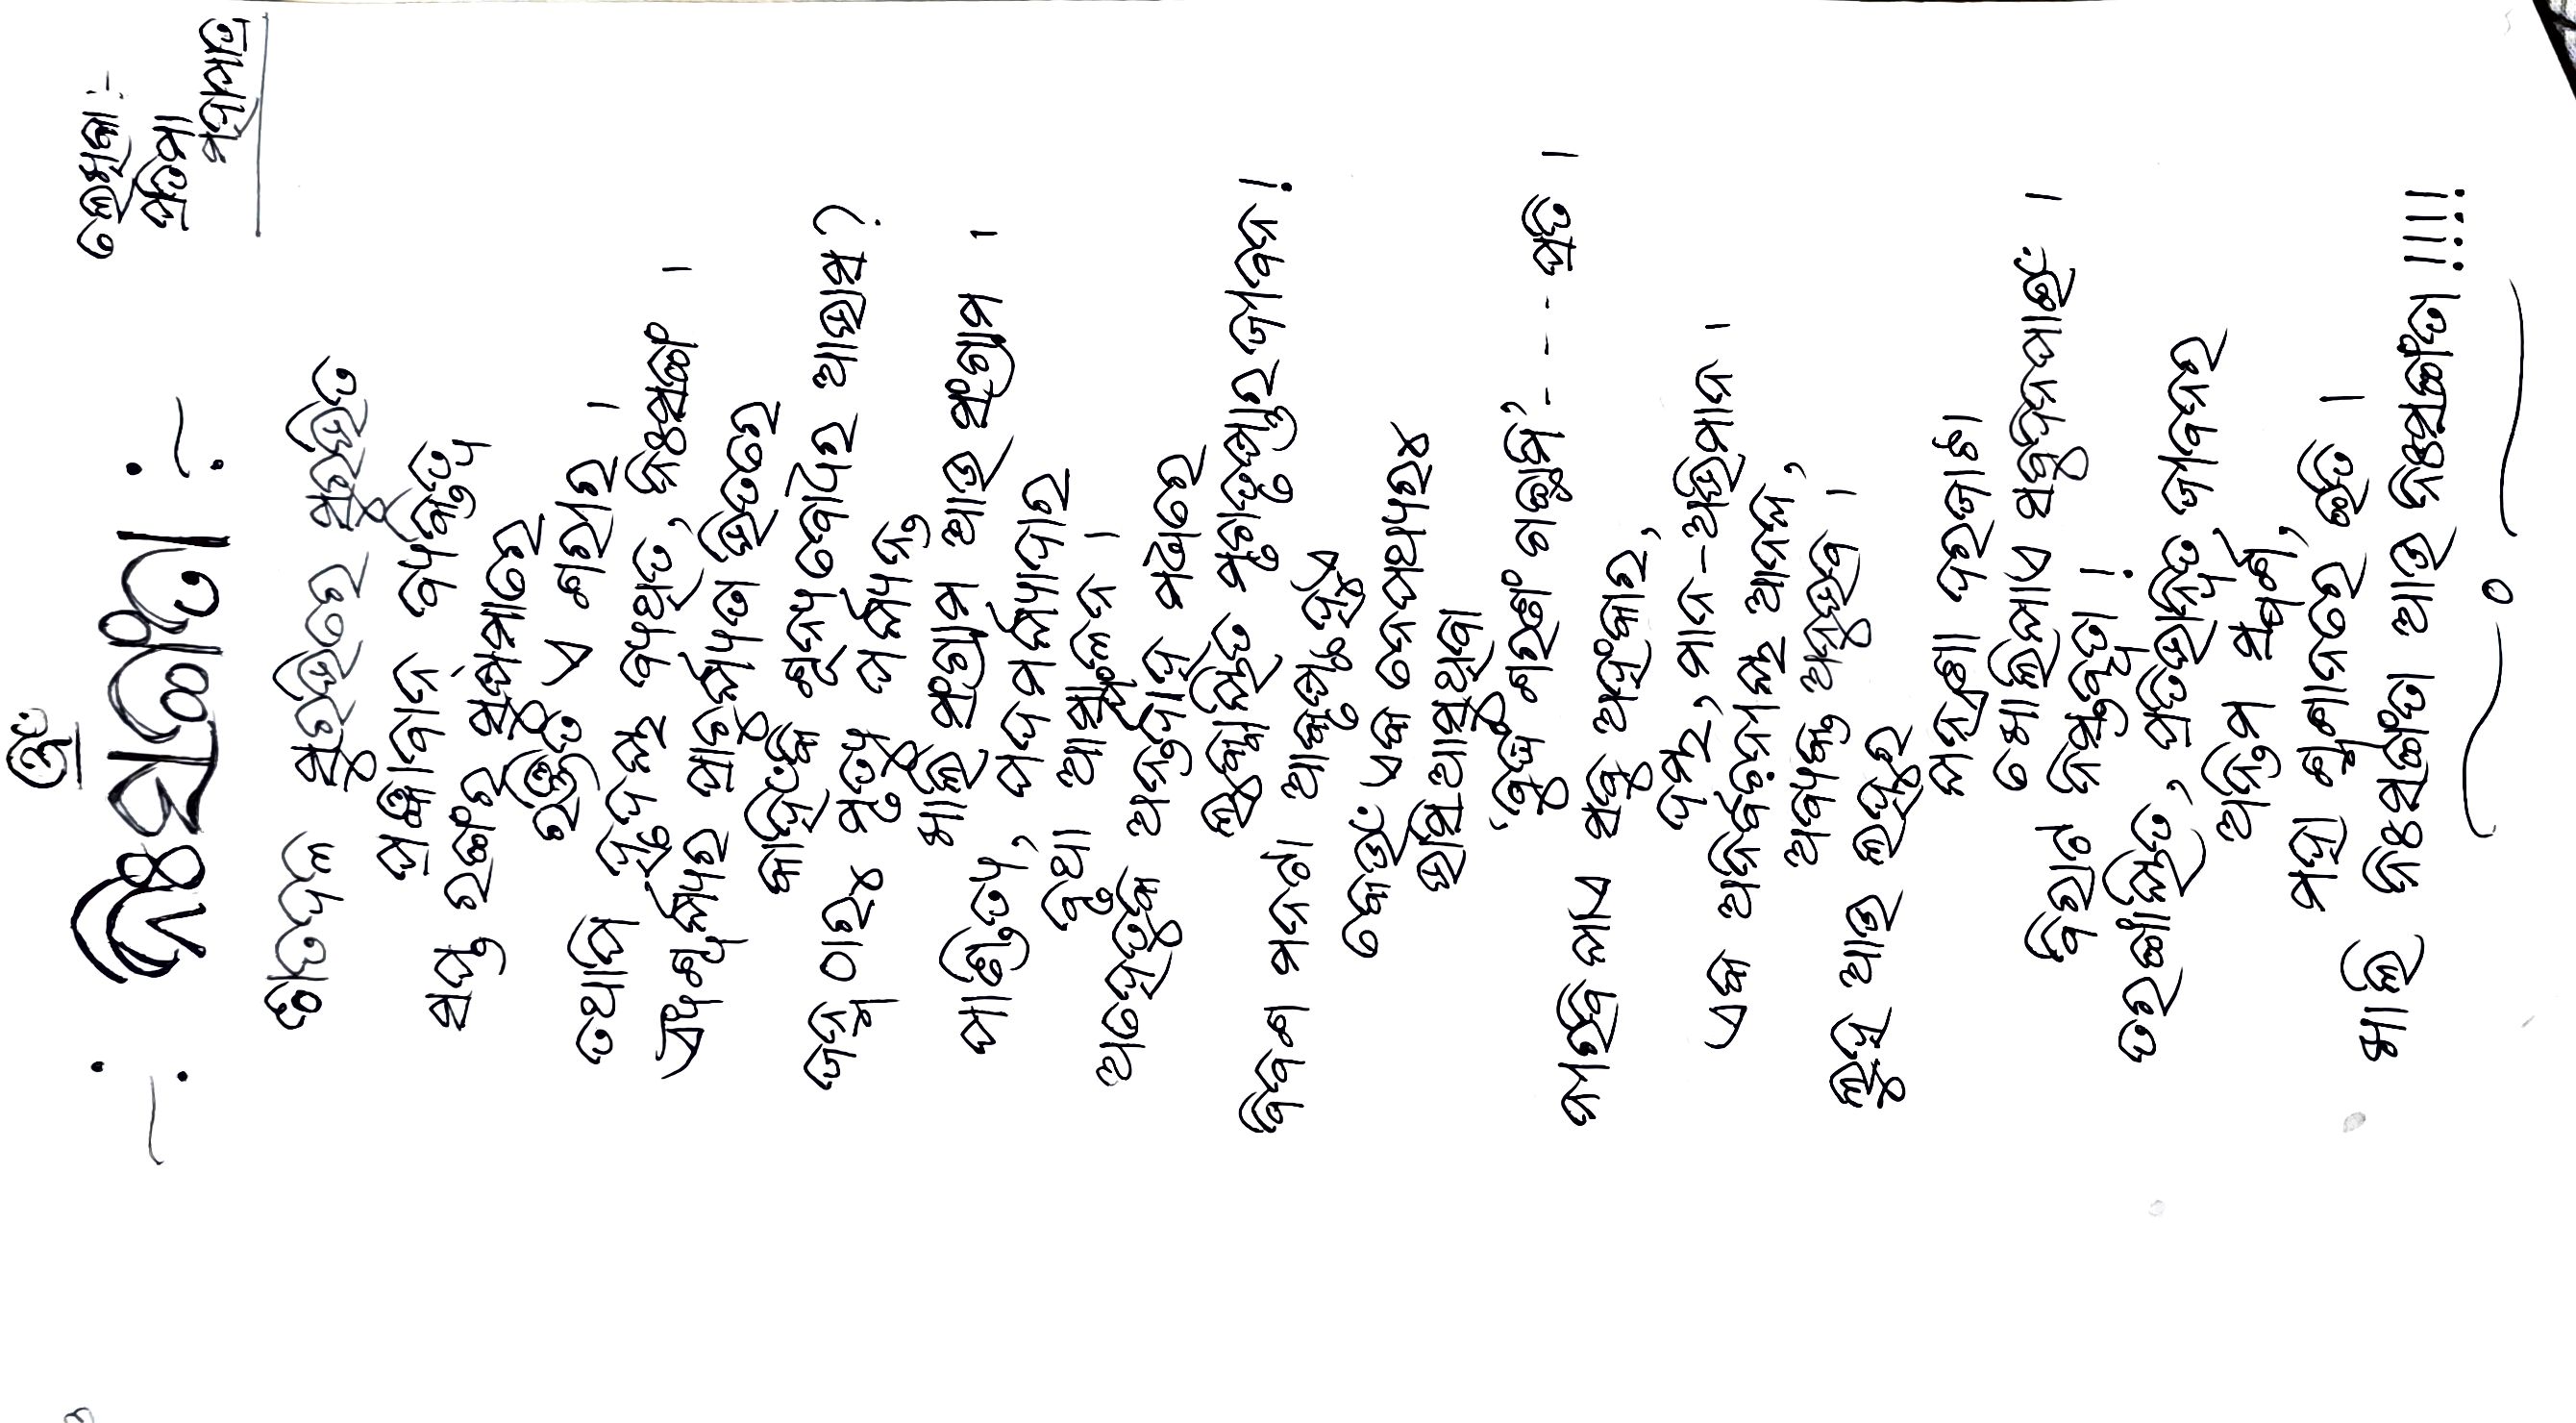 ଓଁ
-: ନିଃସଙ୍ଗତା :-
ଲେଖିକା :-
ପ୍ରତିମା
ମହାପାତ୍ର
ଶତଦଳ ସୁରଭିରେ ସୁରଭିତ
ପ୍ରଜ୍ଞାବାନ୍ ବ୍ୟକ୍ତିତ୍ୱ
ସପ୍ତ ରଙ୍ଗର ସୁଷମାରେ
ରଞ୍ଜିତ ଏ ଶରୀର ।
ତଥାପି ହୃଦୟ ବ୍ୟଥିତ, ନିଃସଙ୍ଗ ।
ଐଶ୍ୱର୍ଯ୍ୟର ପ୍ରାଚୁର୍ଯ୍ୟତା ଭିତରେ
କାହିଁକି ଶୂନ୍ୟ ବୋଧର ଆଭାସ ?
ଜନ୍ମ ଠାରୁ ମୃତ୍ୟୁ ପର୍ଯ୍ୟନ୍ତ
ଖାଲି ସଂଗ୍ରାମ ଆଉ ସଂଗ୍ରାମ ।
ପାଣ୍ଡିତ୍ୟ, ପଦମର୍ଯ୍ୟାଦାର
ବୃଥା ଆସ୍ଫାଳନ ।
ଅହେତୁକ ଅନ୍ତର୍ଦାହ ମଧ୍ୟରେ
ଲୁକ୍କାୟିତ ମୃଗତୃଷ୍ଣାର ଜୀବନ !
ବିବଶ ମନଟା ଆକୃଷ୍ଟ ହୁଏ
କେଉଁ ଏକ ନେପଥ୍ୟରୁ
ଭାସି ଆସୁଥିବା
‘ବୁଦ୍ଧଂ ଶରଣଂ ଗଚ୍ଛାମି’ - - - ପ୍ରତି ।
ନୀରବି ଯାଏ ସବୁ ଅହଂକାର,
ଦମ୍ଭ, ମାନ-ଅଭିମାନ ।
ଏକ ଅନିର୍ବଚନୀୟ ଆନନ୍ଦ,
ଅବ୍ୟକ୍ତ ଅନୁଭବ ।
ଲୁହ ଆଉ ଲହୁର
ଯନ୍ତ୍ରଣା ଦରଜାଟା
ଖୋଲିଯାଏ ସବୁଦିନପାଇଁ ।
ବିରାଟ ନିସ୍ତବ୍ଧତା !
ତରଙ୍ଗାୟିତ, ପ୍ରତିଭାନ୍ୱିତ ଜୀବନର
ଅନ୍ତିମ ସ୍ପର୍ଶ,
ମହା ଶ୍ମଶାନରେ ଇତି ।
ଖାଲି ନିଃସଙ୍ଗତା ଆଉ ନିଃସଙ୍ଗତା !!!!